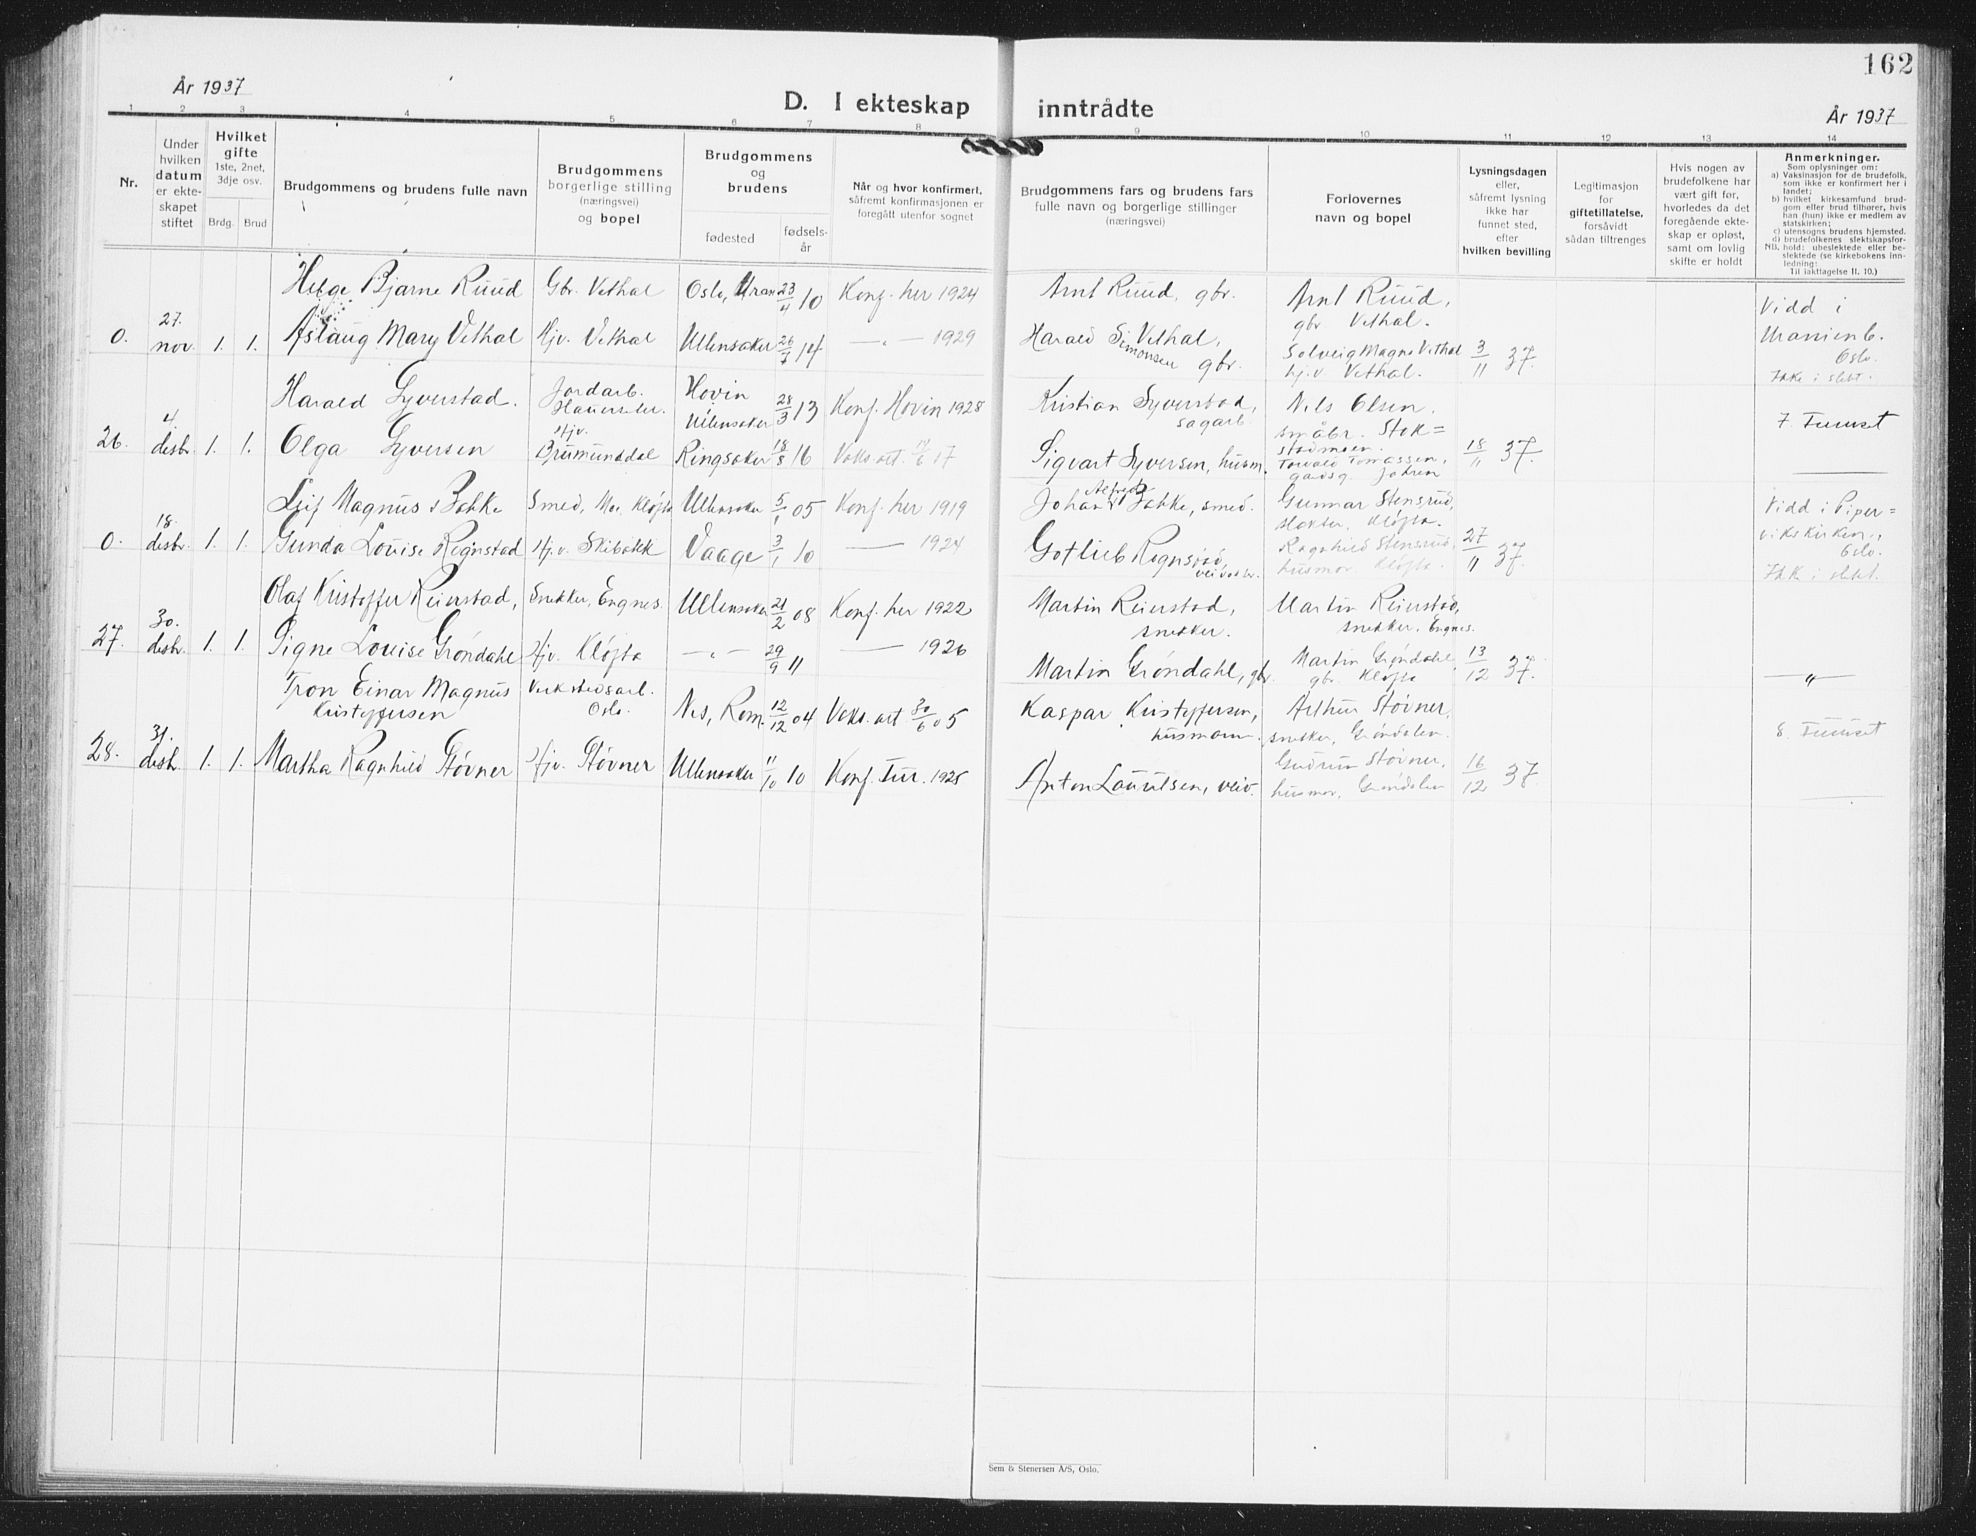 162
År 1937
D. I ekteskap inntrådte
År 1937
1 2 3 4 5 6 7 8 9 10 11 12 13 14
Nr.
Under
hvilken
datum
er ekte-
skapet
stiftet
Hvilket
gifte
1ste, 2net,
3dje osv.
Brdg. Brud
Brudgommens og brudens fulle navn
Brudgommens
borgerlige stilling
(næringsvei)
og bopel
Brudgommens
og
brudens
fødested
fødsels-
år
Når og hvor konfirmert,
såfremt konfirmasjonen er
foregått utenfor sognet
Brudgommens fars og brudens fars
fulle navn og borgerlige stillinger
(næringsvei)
Forlovernes
navn og bopel
Lysningsdagen
eller,
såfremt lysning
ikke har
funnet sted,
efter
hvilken bevilling
Legitimasjon
for
giftetillatelse,
forsåvidt
sådan tiltrenges
Hvis nogen av
brudefolkene har
vært gift før,
hvorledes da det
foregående ekte-
skap er opløst,
samt om lovlig
skifte er holdt
Anmerkninger.
Som oplysninger om:
a) Vaksinasjon for de brudefolk,
som ikke er konfirmert her i
landet;
b) hvilket kirkesamfund brud-
gom eller brud tilhører, hvis
han (hun) ikke er medlem av
statskirken;
c) utensogns brudens hjemsted.
d) brudefolkenes slektskapsfor-
NB. hold: ubeslektede eller be-
slektede (se kirkebokens inn-
ledning:
Til iakttagelse II. 10.)
Helge Bjarne Ruud Gbr. Vethal Oslo, Uran 23/4 10 Konf. her 1924 Arnt Ruud, gbr. Arnt Ruud,
gbr Vethal.
Vidd i
Uranienb.
Oslo.
Ikke i slekt.
0. 27. nov. 1. 1. Aslaug Mary Vethal Hjv. Vethal Ullensaker 26/7 14 —„— 1929 Harald Simonsen Vethal, gbr. Solveig Magne Vethal
hj.v. Vethal.
3/11 37.
Harald Syverstad. Jordarb.
Hovin
Ullensaker 28/3 13 Konf. Hovin 1928 Kristian Syverstad,
sagarb.
Nils Olsen,
småbr. Stok=
stadmoen.
7. Furuset
26. 4. desbr. 1. 1. Olga Syversen Hjv.
Brumunddal Ringsaker 18/8 16 Vaks.att. 17 Sigvart Syversen, husm. Tomassen,
gårdsg. Jahren
18/11 37.
Leif Magnus Bakke Smed, Mo. Kløfta Ullensaker 5/1 05 Konf. her 1919 Johan Alfred Bakke, smed. Gunnar Stensrud,
Kløfta.
Vidd i Piper=
vikskirken,
Oslo.
Ikke i slekt.
0. 18. desbr. 1. 1. Gunda Louise Regnstad Hj.v. Skibakk Vaage 3/1 10 — 1924 Gotlieb
Ragnhild Stensrud,
husmor. Kløfta.
27/11 37.
Olaf Kristoffer Reierstad, Snekker, Engnes. Ullensaker 21/2 08 Konf. her 1922 Martin Reierstad,
snekker.
Martin Reierstad,
snekker. Engnes.
27. 30. desbr. 1. 1. Signe Louise Grøndahl Hjv. Kløfta —„— 29/9 11 — 1926 Martin Grøndahl, gbr. Martin Grøndahl,
gbr. Kløfta
13/12 37. —„—
Tron Einar Magnus
Kristoffersen
Verkstedsarb.
Oslo.
Nes, Rom. 12/12 04 Vaks. att 30/6 05 Kaspar Kristoffersen,
husmann.
Arthur Støvner,
snekker, Grøndalen.
8. Furuset
28. 31. desbr. 1. 1. Martha Ragnhild Støvner Hjv. Støvner Ullensaker 11/10 10 Konf. Fur. 1925 Anton Lauritsen, veiv. Gudrun Støvner,
husmor, Grøndalen
16/12 37.
Sem & Stenersen A/S, Oslo.